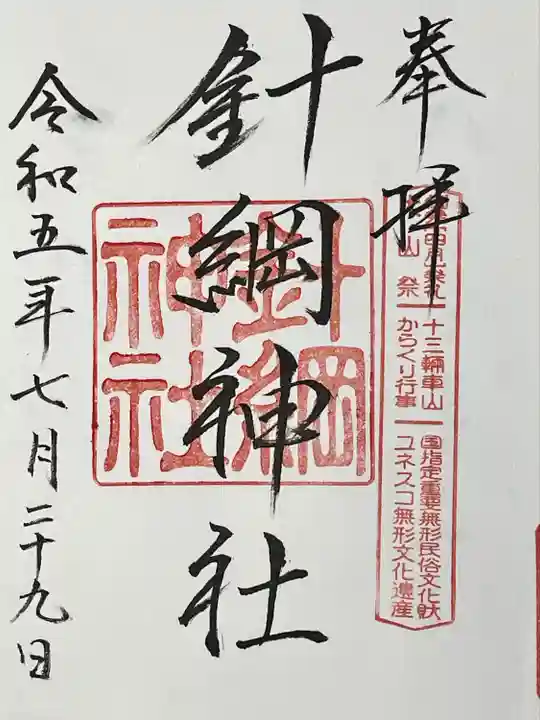 奉拝
四月祭礼
山祭
十三輛車山
からくり行事
国指定重要無形民俗文化財
ユネスコ無形文化遺産
針綱神社
針綱神社
令和五年七月二十九日